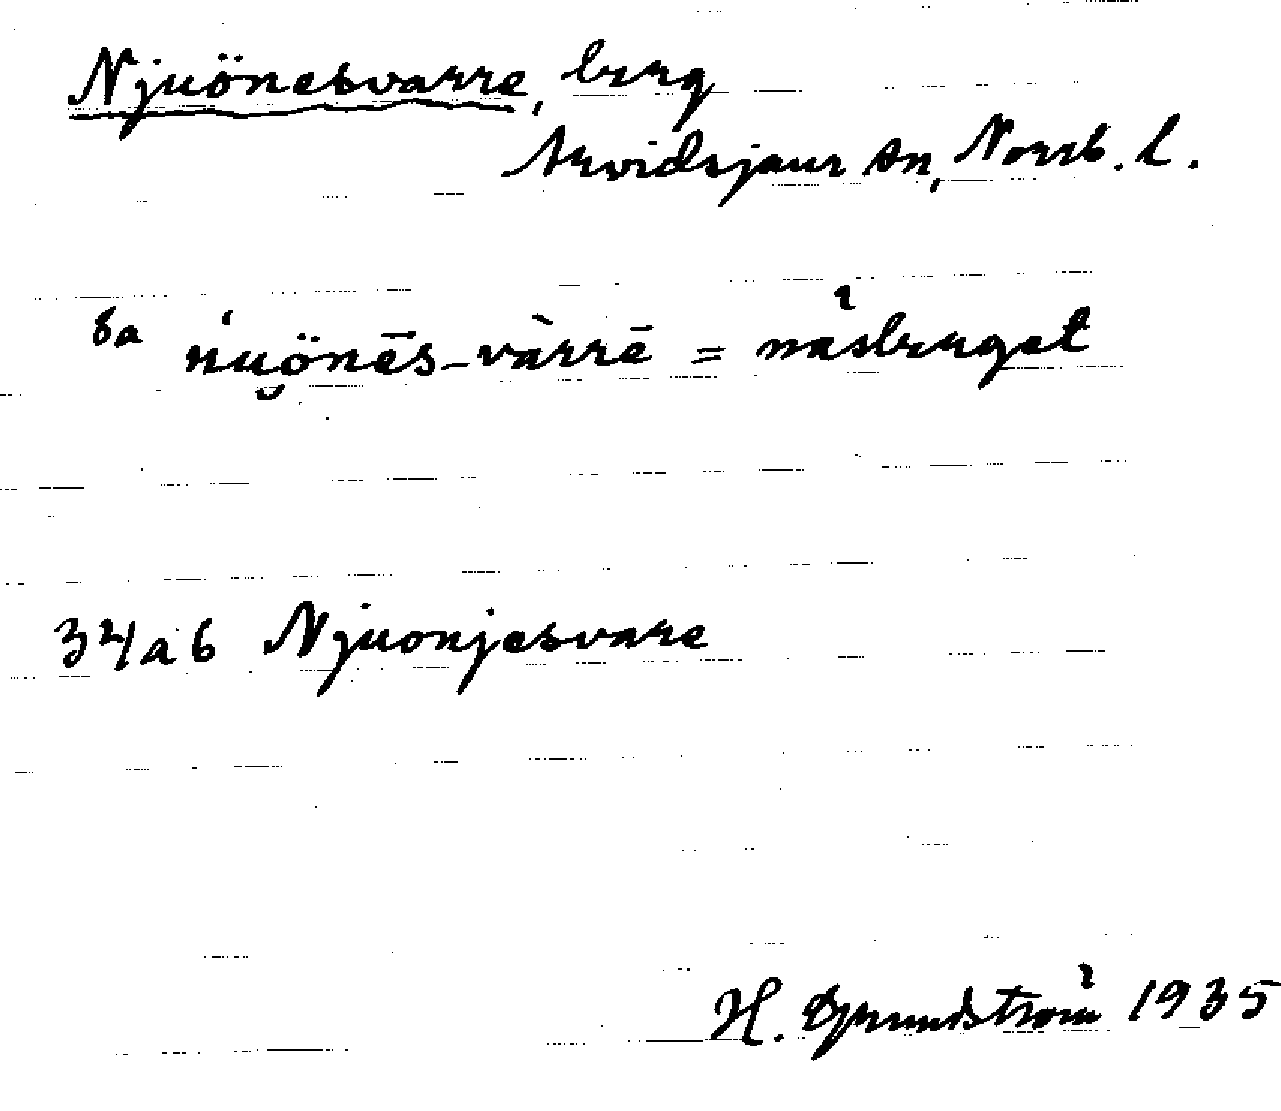 Njuönesvarre, berg
Arvidsjaur sn, Norrb. l.
6a ńuu̯önēs-vàrrē = näsberget
34a6 Njuonjesvare
H. Grundström 1935